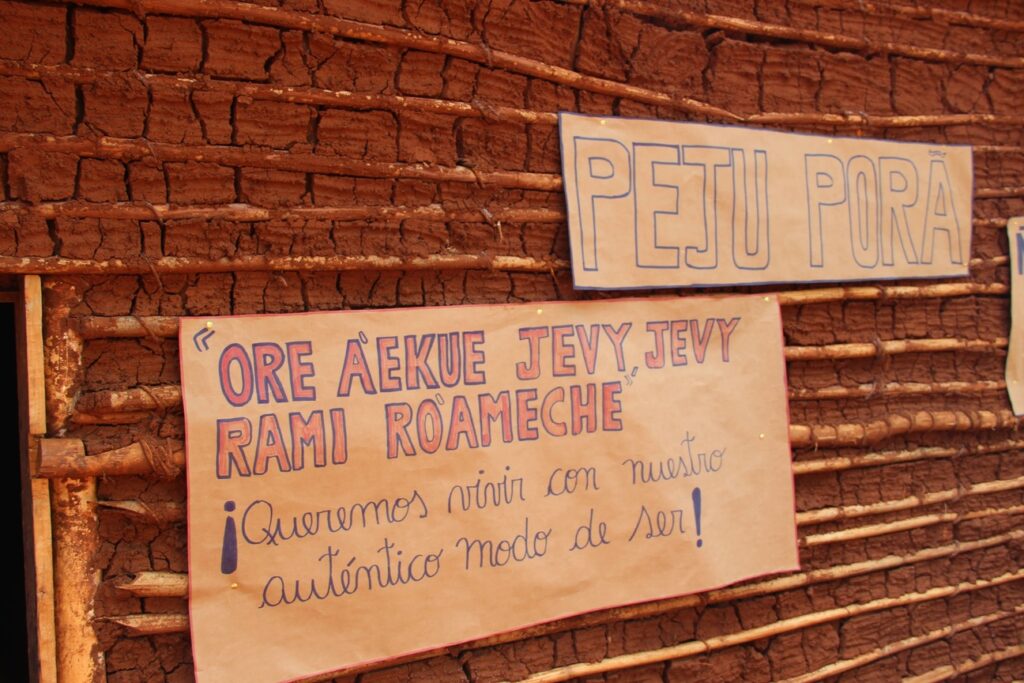 PEJU PORÃ
“ORE A'EKUE JEVY JEVY
RAMI RO'AMECHE”
¡Queremos vivir con nuestro
auténtico modo de ser!